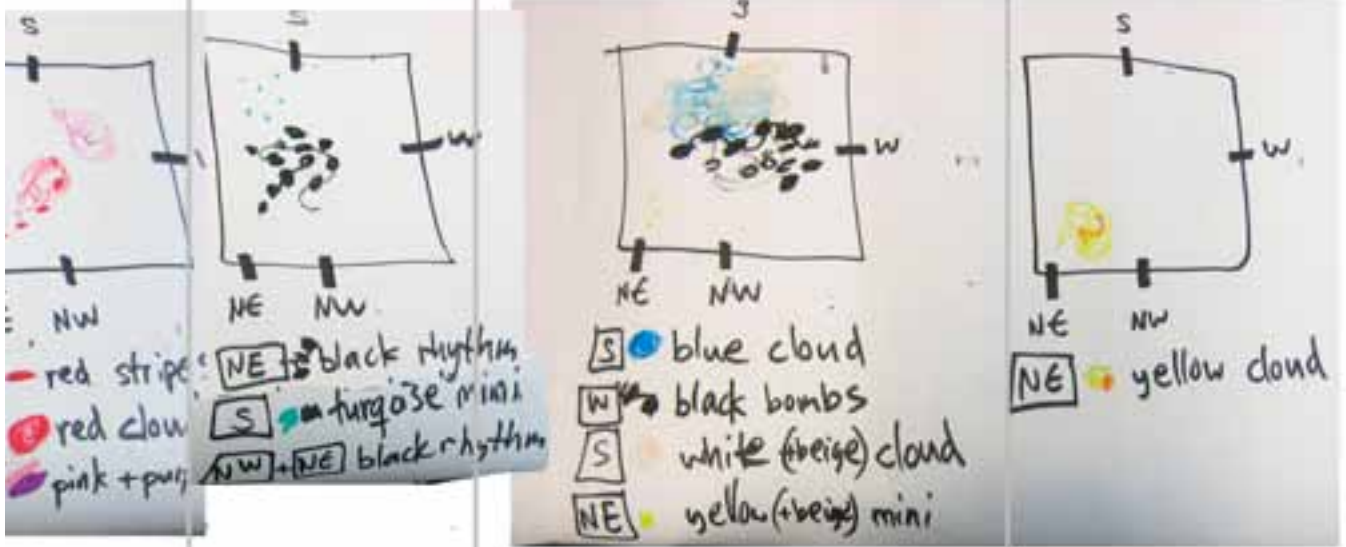 S
NW
red stripe
red clou
pink + pur
S
W
NE NW
NE black rhythm
S turqoise mini
NW + NE black rhythm
S
W
NE NW
S blue cloud
W black bombs
S white (+beige) cloud
NE yellow (+beige) mini
S
W
NE NW
NE yellow cloud